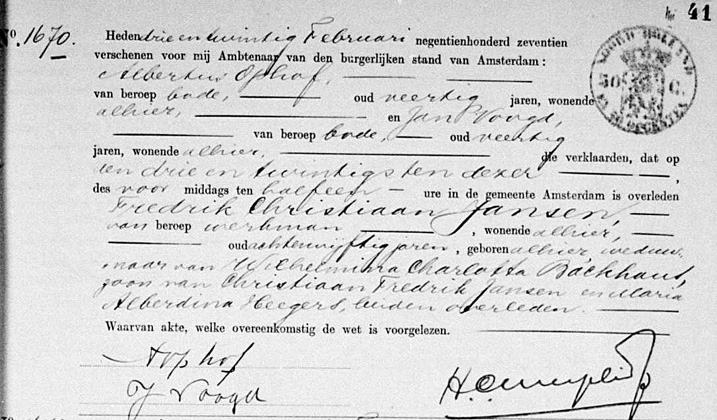 41
No. 1670. Heden drie en twintig Februari negentienhonderd zeventien
verschenen voor mij Ambtenaar van den burgerlijken stand van Amsterdam:
Albertus Ophof,
van beroep bode, oud veertig jaren, wonende
alhier, en Jan Voogd,
van beroep bode, oud veertig
jaren, wonende alhier, die verklaarden, dat op
den drie en twintigsten dezer,
des voor middags ten half een ure in de gemeente Amsterdam is overleden
Fredrik Christiaan Jansen,
van beroep werkman, wonende alhier,
oud achtenvijftig jaren, geboren alhier, weduw-
naar van Wilhelmina Charlotta Backhaus,
zoon van Christiaan Fredrik Jansen en Maria
Alberdina Heegers, beiden overleden.
Waarvan akte, welke overeenkomstig de wet is voorgelezen.
A Ophof
J Voogd